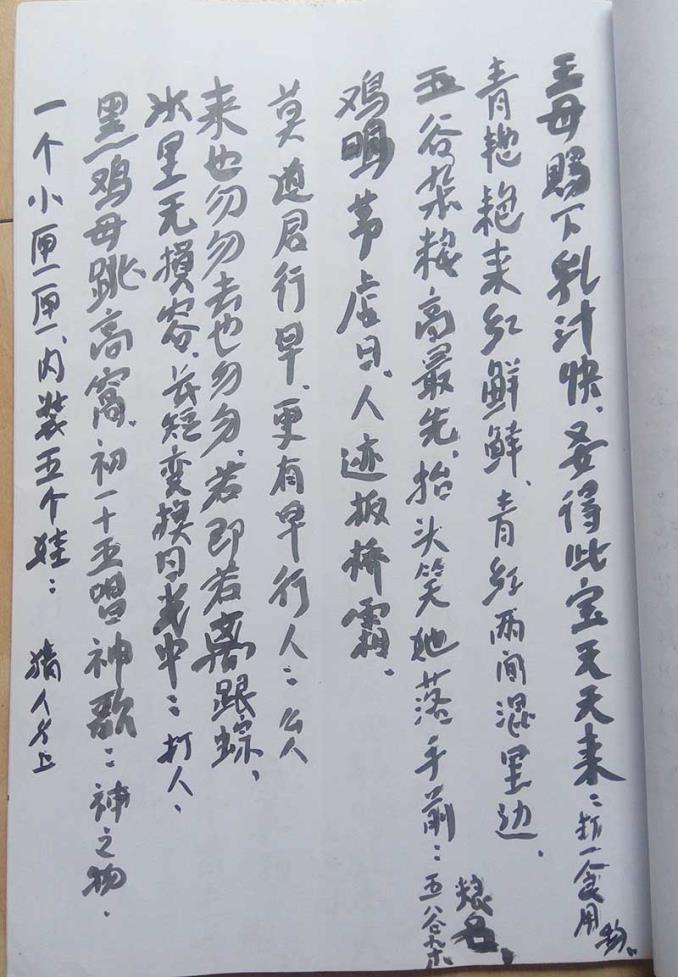 王母赐下乳汁快、得此宝天天来：打一食用物。
青艳艳来红鲜鲜、青红两间混里边、
五谷杂粮高最先、抬头笑她落手前：五谷杂粮名。
鸡鸣茅店日、人迹板桥霜、
莫道君行早、更有早行人：公人
来也勿勿去也勿勿、若即若离跟踪、
水里无損容、长短变换日光中：打人、
黑鸡母跳高窝、初一十五唱神歌：神之物.
一个小匣一匣、内装五个娃：猜人名上